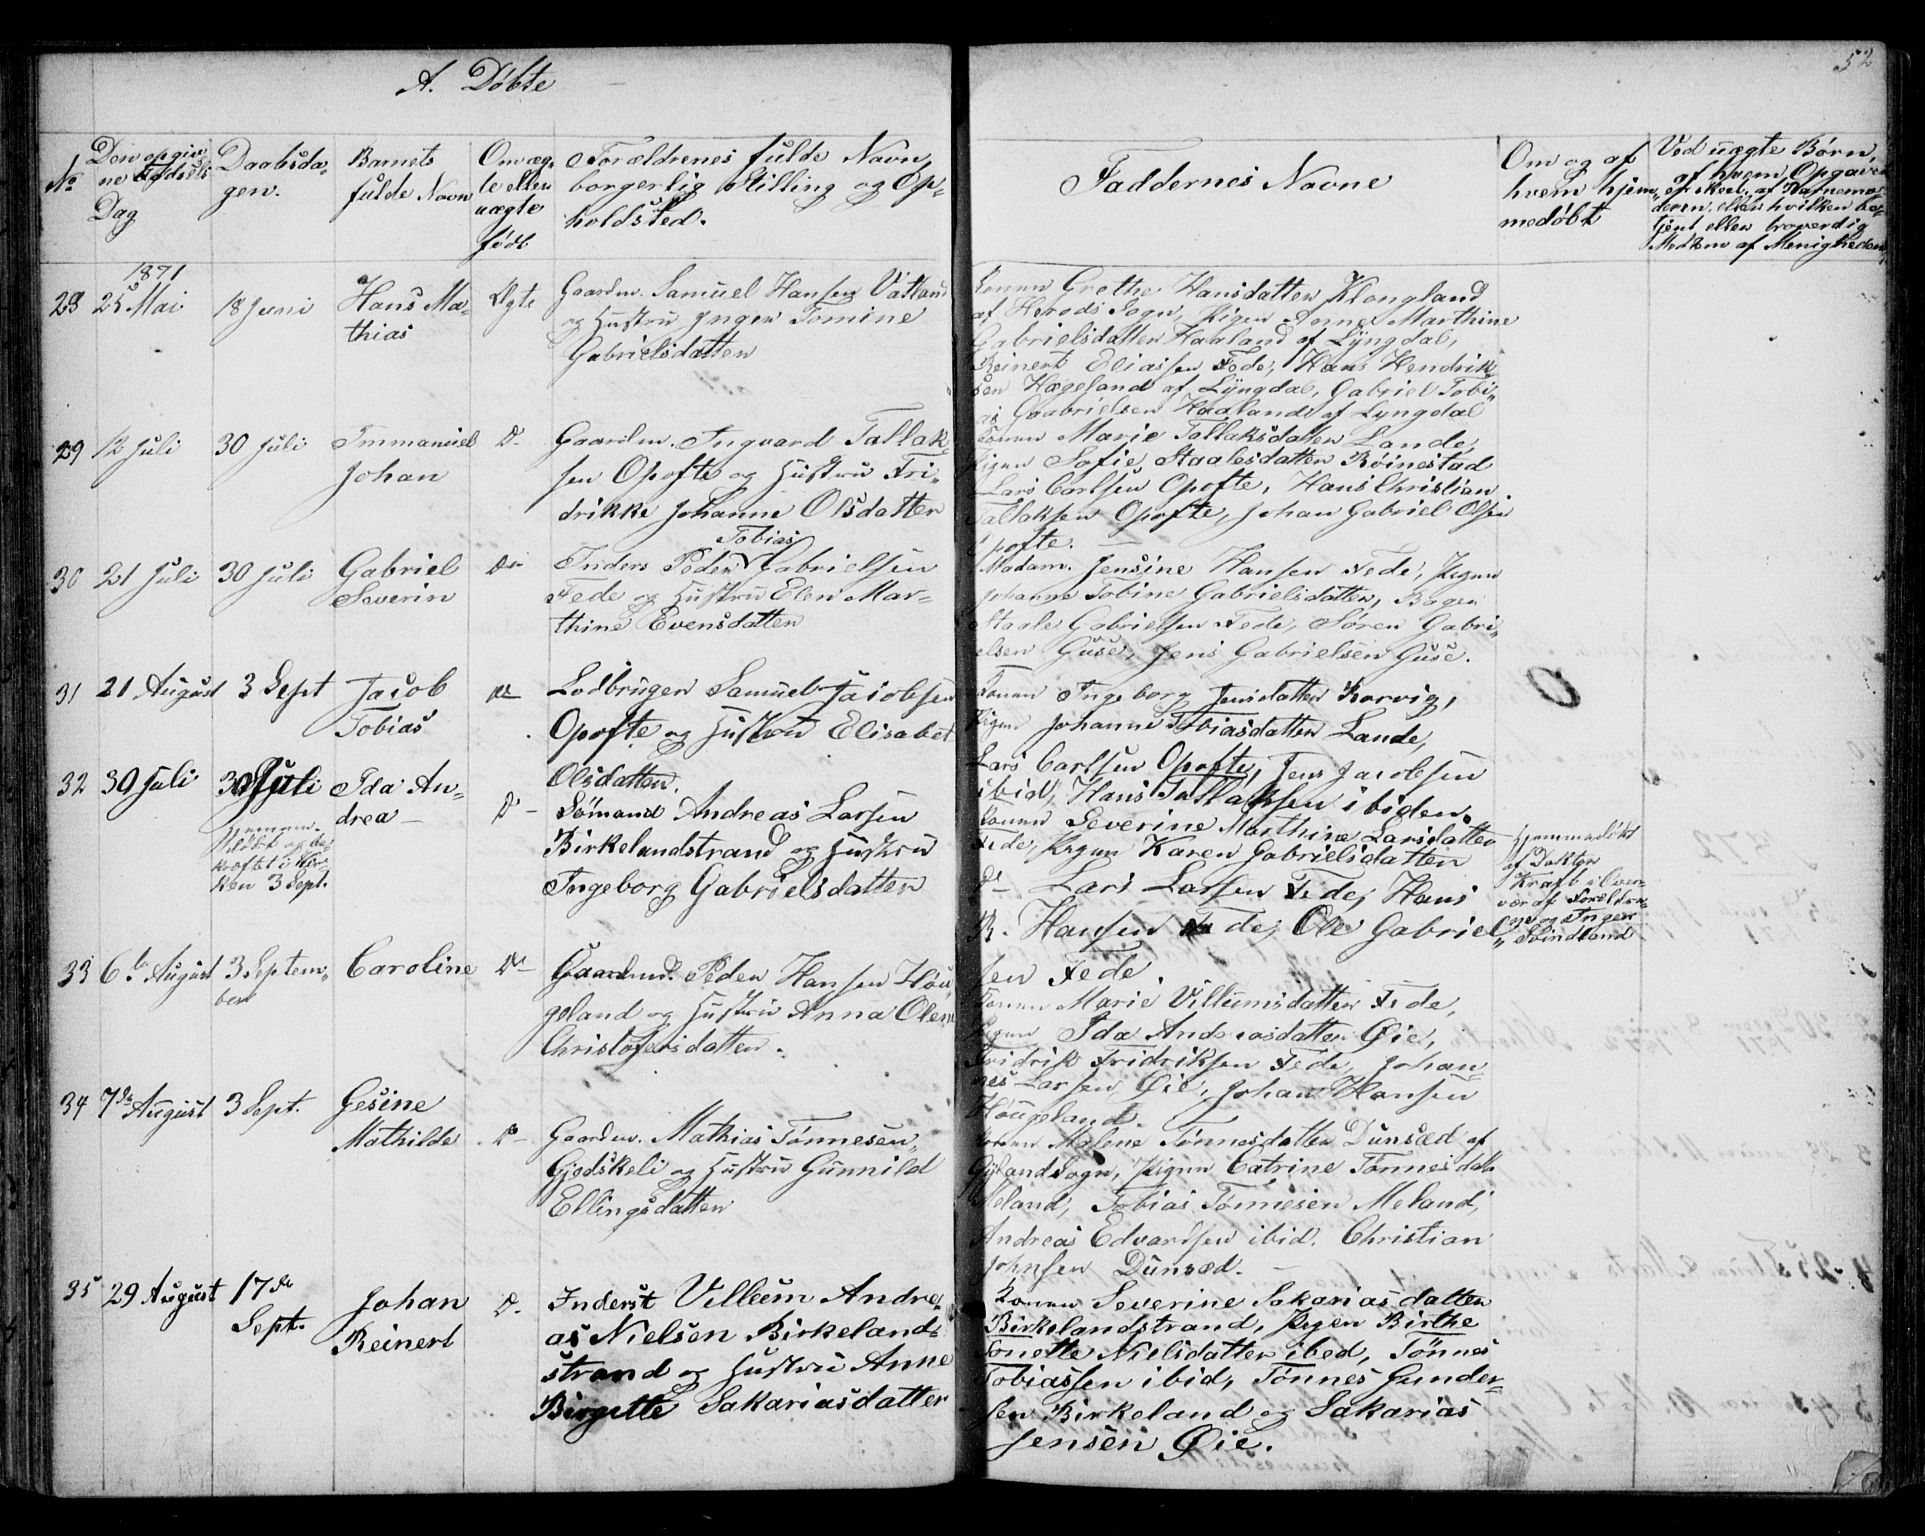 52
A. Døbte
No
Den opgiv
ne Fødsels
Dag
Daabsda-
gen.
Barnets
fulde Navn
Om æg-
te eller
uægte
født
Forældrenes fulde Navn,
borgerlig Stilling og Op-
holdsted.
Faddernes Navne
Om og af
hvem hjem-
medøbt
Ved uægte Børn,
af hvem Opgaven
er skeet, af Barnemo-
deren, eller hvilken be-
tjent eller troverdig
Mdkm af Menigheden,
1871
28 25 Mai 18 Juni Hans Ma-
thias
Ægte
Gaardm. Samuel Hansen Vatland
og Hustru Inger Tomine
Gabrielsdatter
Konen Grethe Hansdatter Klongland
af Herods Sogn, Pigen Anne Marthine
Gabrielsdatter Haaland af Lyngdal,
Reinert Eliassen Fede, Hans Hendrik
sen Hægeland af Lyngdal, Gabriel Tobi-
as Gabrielsen Haaland af Lyngdal
29 12 Juli 30 Juli Immanuel
Johan
D-
Gaardm. Ingvard Tallak
sen Opofte og Hustru Fri-
drikke Johanne Olsdatter
Konen Marie Tallaksdatter Lande,
Pigen Sofie Staalesdatter Røinestad
Lars Carlsen Opofte, Hans Christian
Tallaksen Opofte, Johan Gabriel Olsen
Opofte.
30 21 Juli 30 Juli Gabriel
Severin
Do
Tobias
Inders Peder Gabrielsen
Fede og Hustru Elen Mar-
thine Evensdatter
Madam. Jensine Hansen Fede, Pigen
Johanne Tobine Gabrielsdatter, Bager
Staale Gabrielsen Fede, Søren Gabri-
elsen Guse, Jens Gabrielsen Guse.
31 21 August 3 Sept Jacob
Tobias
Do
Lodbruger Samuel Jacobsen
Opofte og Hustru Elisabet
Olsdatter.
Konen Ingeborg Jensdatter Korvig,
Pigen Johanne Tobiasdatter Lande,
Lars Carlsen Opofte, Jens Jacobsen
ibid, Hans Tallaksen ibiden.
0
32 30 Juli 30 Juli Ida An-
drea
Hjemme-
døbt og be-
kræftet i Kir-
ken 3 Sept.
D-
Sømand Andreas Larsen
Birkelandstrand og Hustru
Ingeborg Gabrielsdatter
Konen Severine Marthine Larsdatter
Fede, Pigen Karen Gabrielsdatter
Do Lars Larsen Fede, Hans
R. Hansen Fede, Ole Gabriel
sen Fede.
Hjemmedøbt
af Doktor
Kraft i Over-
vær af Forældre-
ne og Inger
Svindland
33 6te August 3 Septem-
ber
Caroline
Do-
Gaardmd. Peder Hansen Høu
geland og Hustru Anna Olene
Christofersdatter.
Konen Marie Villumsdatter Fede,
Pigen Ida Andreasdatter Øie,
Fridrik Fridriksen Fede, Johan-
nes Larsen Øie, Johan Hansen
Høugeland.
34 7de August 3 Sept. Gesine
Mathilde
Do-
Gaardm. Mathias Tønnesen
Gjedskeli og Hustru Gunnild
Ellingsdatter
Konen Malene Tønnesdatter Dunsæd af
Gylands Sogn, Pigen Catrine Tønnesdatt
Meland, Tobias Tønnesen Meland,
Andreas Edvardsen ibid. Christian
Johnsen Dunsæd.
35 29 August 17de
Sept.
Johan
Reinert
D-
Inderst Villum Andre-
as Nielsen Birkelands
strand og Hustru Anne
Birgitte Sakariasdatter
Konen Severine Sakariasdatter
Birkelandstrand, Pigen Birthe
Tonette Nielsdatter ibed, Tönnes
Tobiassen ibid, Tønnes Gunder-
sen Birkeland og Sakarias
Jensen Øie.